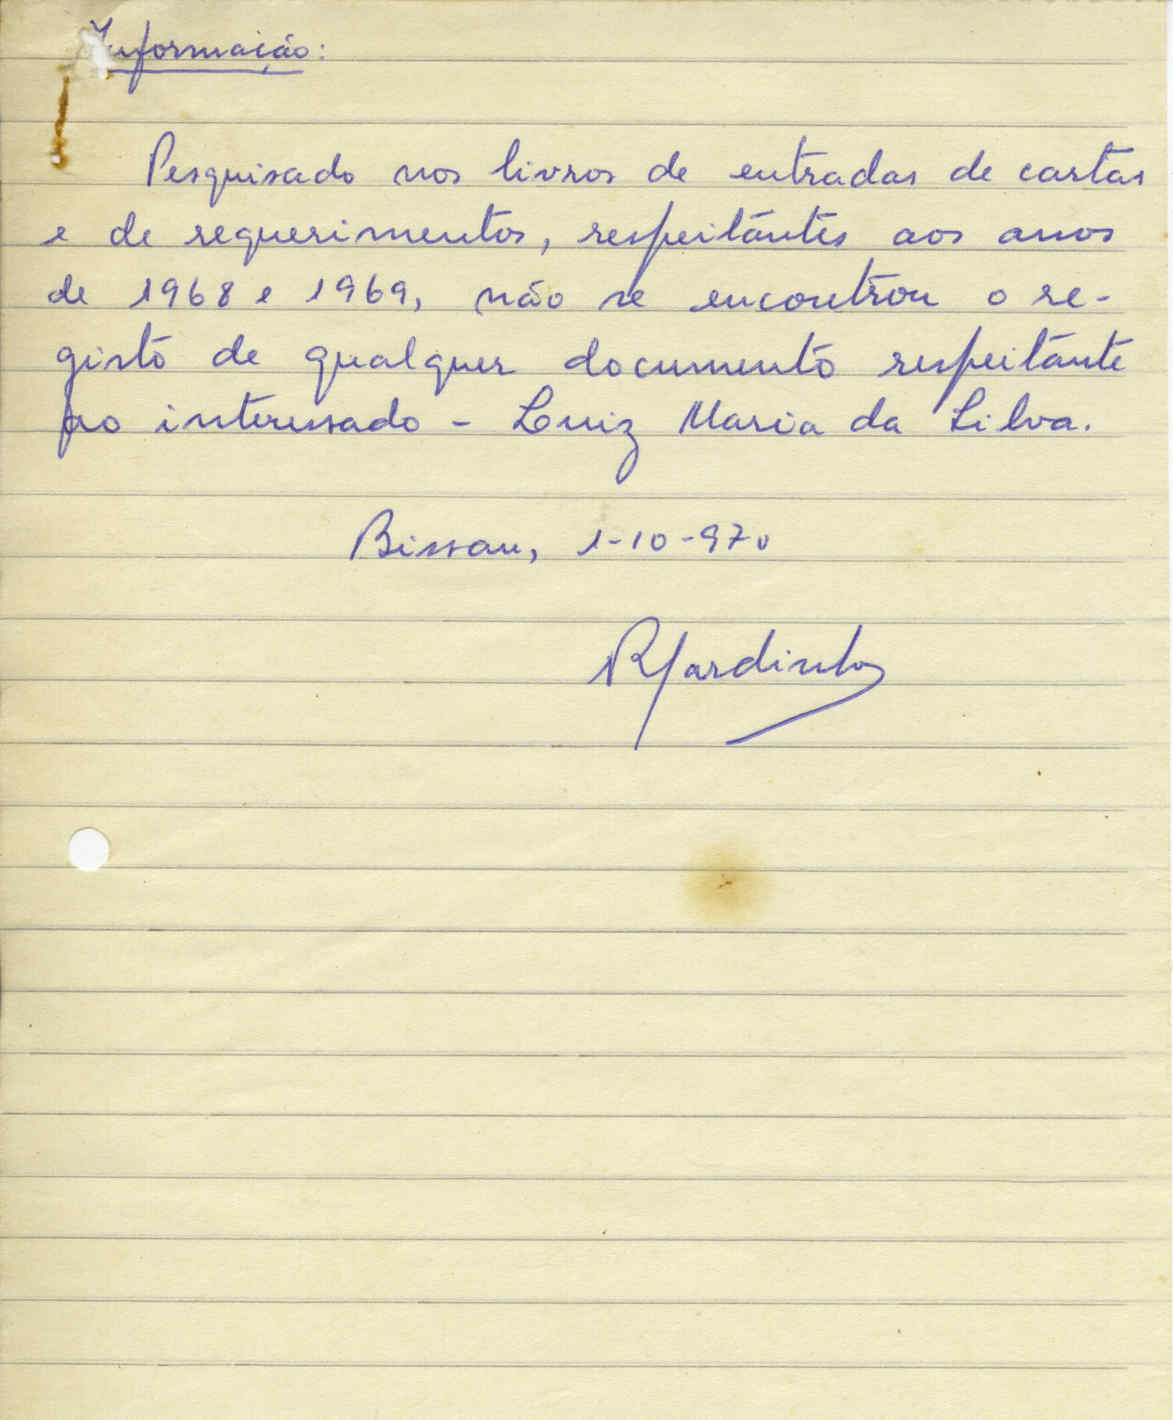 Informação:
Pesquisado nos livros de entradas de cartas
e de requerimentos, respeitantes aos anos
de 1968 e 1969, não se encontrou o re-
gisto de qualquer documento respeitante
ao interessado - Luiz Maria da Silva.
Bissau, 1-10-970